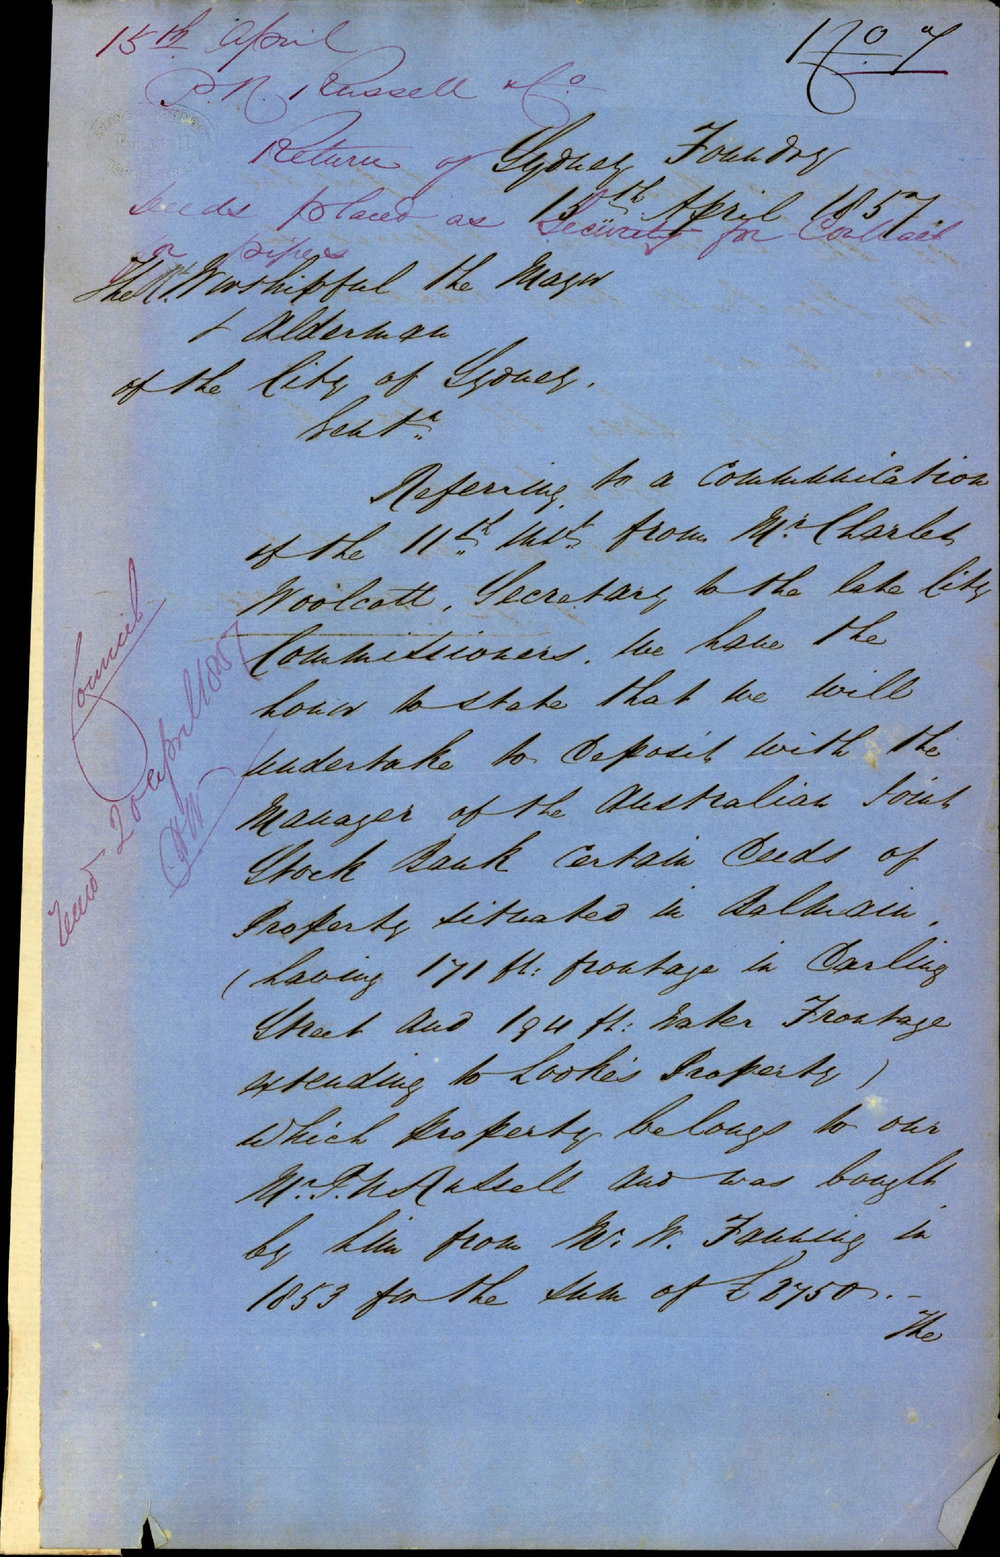 15th April
P. N. Russell & Co
Return of
deeds placed as Security for Contract
for pipes
Sydney Foundry
15th April 1857
The Rt. Worshipful the Mayor
& Alderman
of the City of Sydney.
Gentn
Referring to a Communication
of the 11th Inst. from Mr. Charles
Woolcott, Secretary to the late City
Commissioners. we have the
honor to state that we will
undertake to Deposit with the
Manager of the Australian Joint
Stock Bank Certain Deeds of
Property situated in Balmain,
(having 171 ft: frontage in Darling
Street and 194 ft: Water Frontage
extending to Looke's Property)
which property belongs to our
Mr. P. N Russell and was bought
by him from Mr. W. Fanning in
1853 for the sum of £2750.-
The
Council
Read 20 April 1857